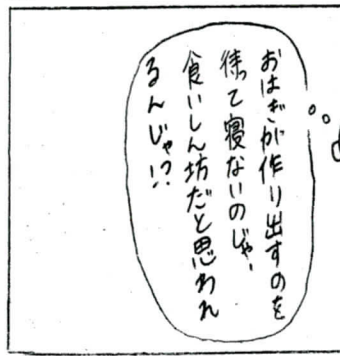 おはぎが作り出すのを
待って寝ないのじゃ、
食いしん坊だと思われ
るんじゃ!?